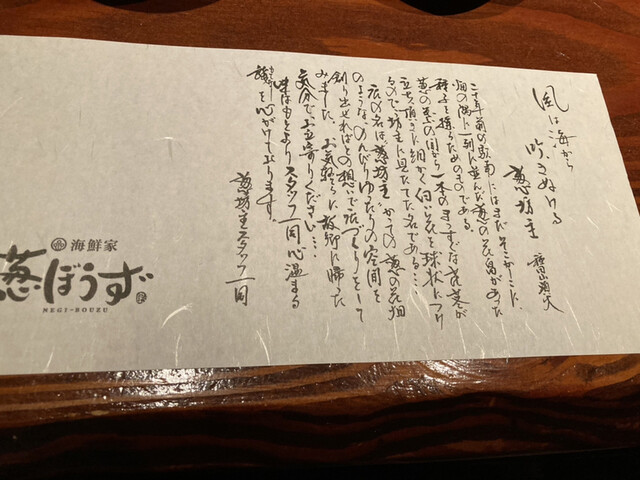 風は海から
吹きぬける
葱坊主
二十年前の駅南にはまだそこかしこに、
畑の隅に一列に並んだ葱の花畠があった
種子を採るためのものである。
葱の葉の間から一本のまっすぐな花茎が
立ち頂きに細かく白い花を球状につけ
るので坊主に見たてた名である…
店の名は、葱坊主 かつての葱の花畑
のような、のんびりゆったりの空間を
創り出せればとの想いで店づくりをして
みました。お気軽に故郷に帰った
気分でお立寄りください…。
味はもとよりスタッフ一同心温まる
議を心がけております。
葱坊主スタッフ一同
海鮮家
葱ぼうず
NEGI-BOUZU